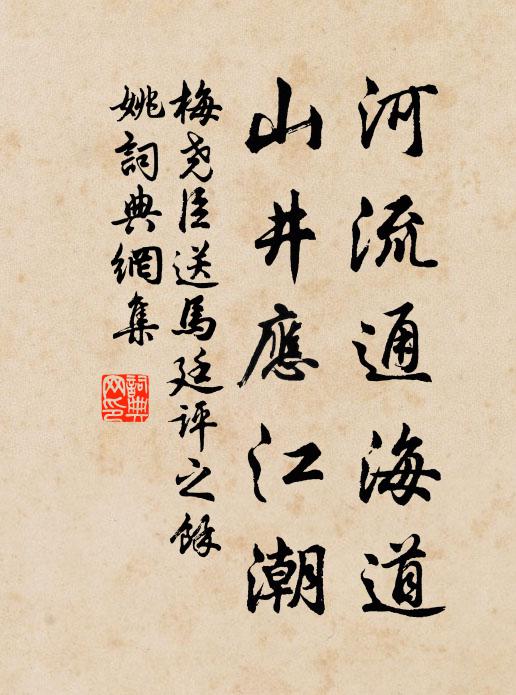 河流通海道
山井應江潮
梅尧臣送馬廷评之餘
姚詞典網集
詞典网印